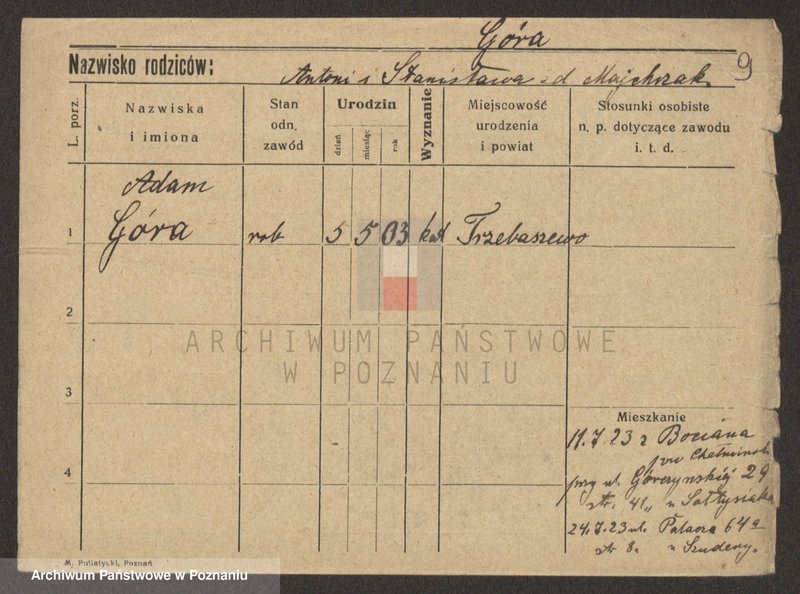 Góra
Nazwisko rodziców: Antoni i Stanisława zd Majchrzak
9
L. porz.
Nazwiska i imiona
Stan odn. zawód
Urodzin
dzień
miesiąc
rok
Wyznanie
Miejscowość urodzenia i powiat
Stosunki osobiste n. p. dotyczące zawodu i. t. d.
Adam
1 Góra rob 5 5 03 kat Trzebaszewo
2
ARCHIWUM PAŃSTWOWE
W POZNANIU
3
Mieszkanie
11.7.23 z Bociana
pow Chełminsk
4
przy ul. Górczynskiej 29
str. 41 u Sołtysiaka
24.7.23 ul. Palacza 64a
str 8a u Szudery.
M. Putiatycki, Poznań
Archiwum Państwowe w Poznaniu